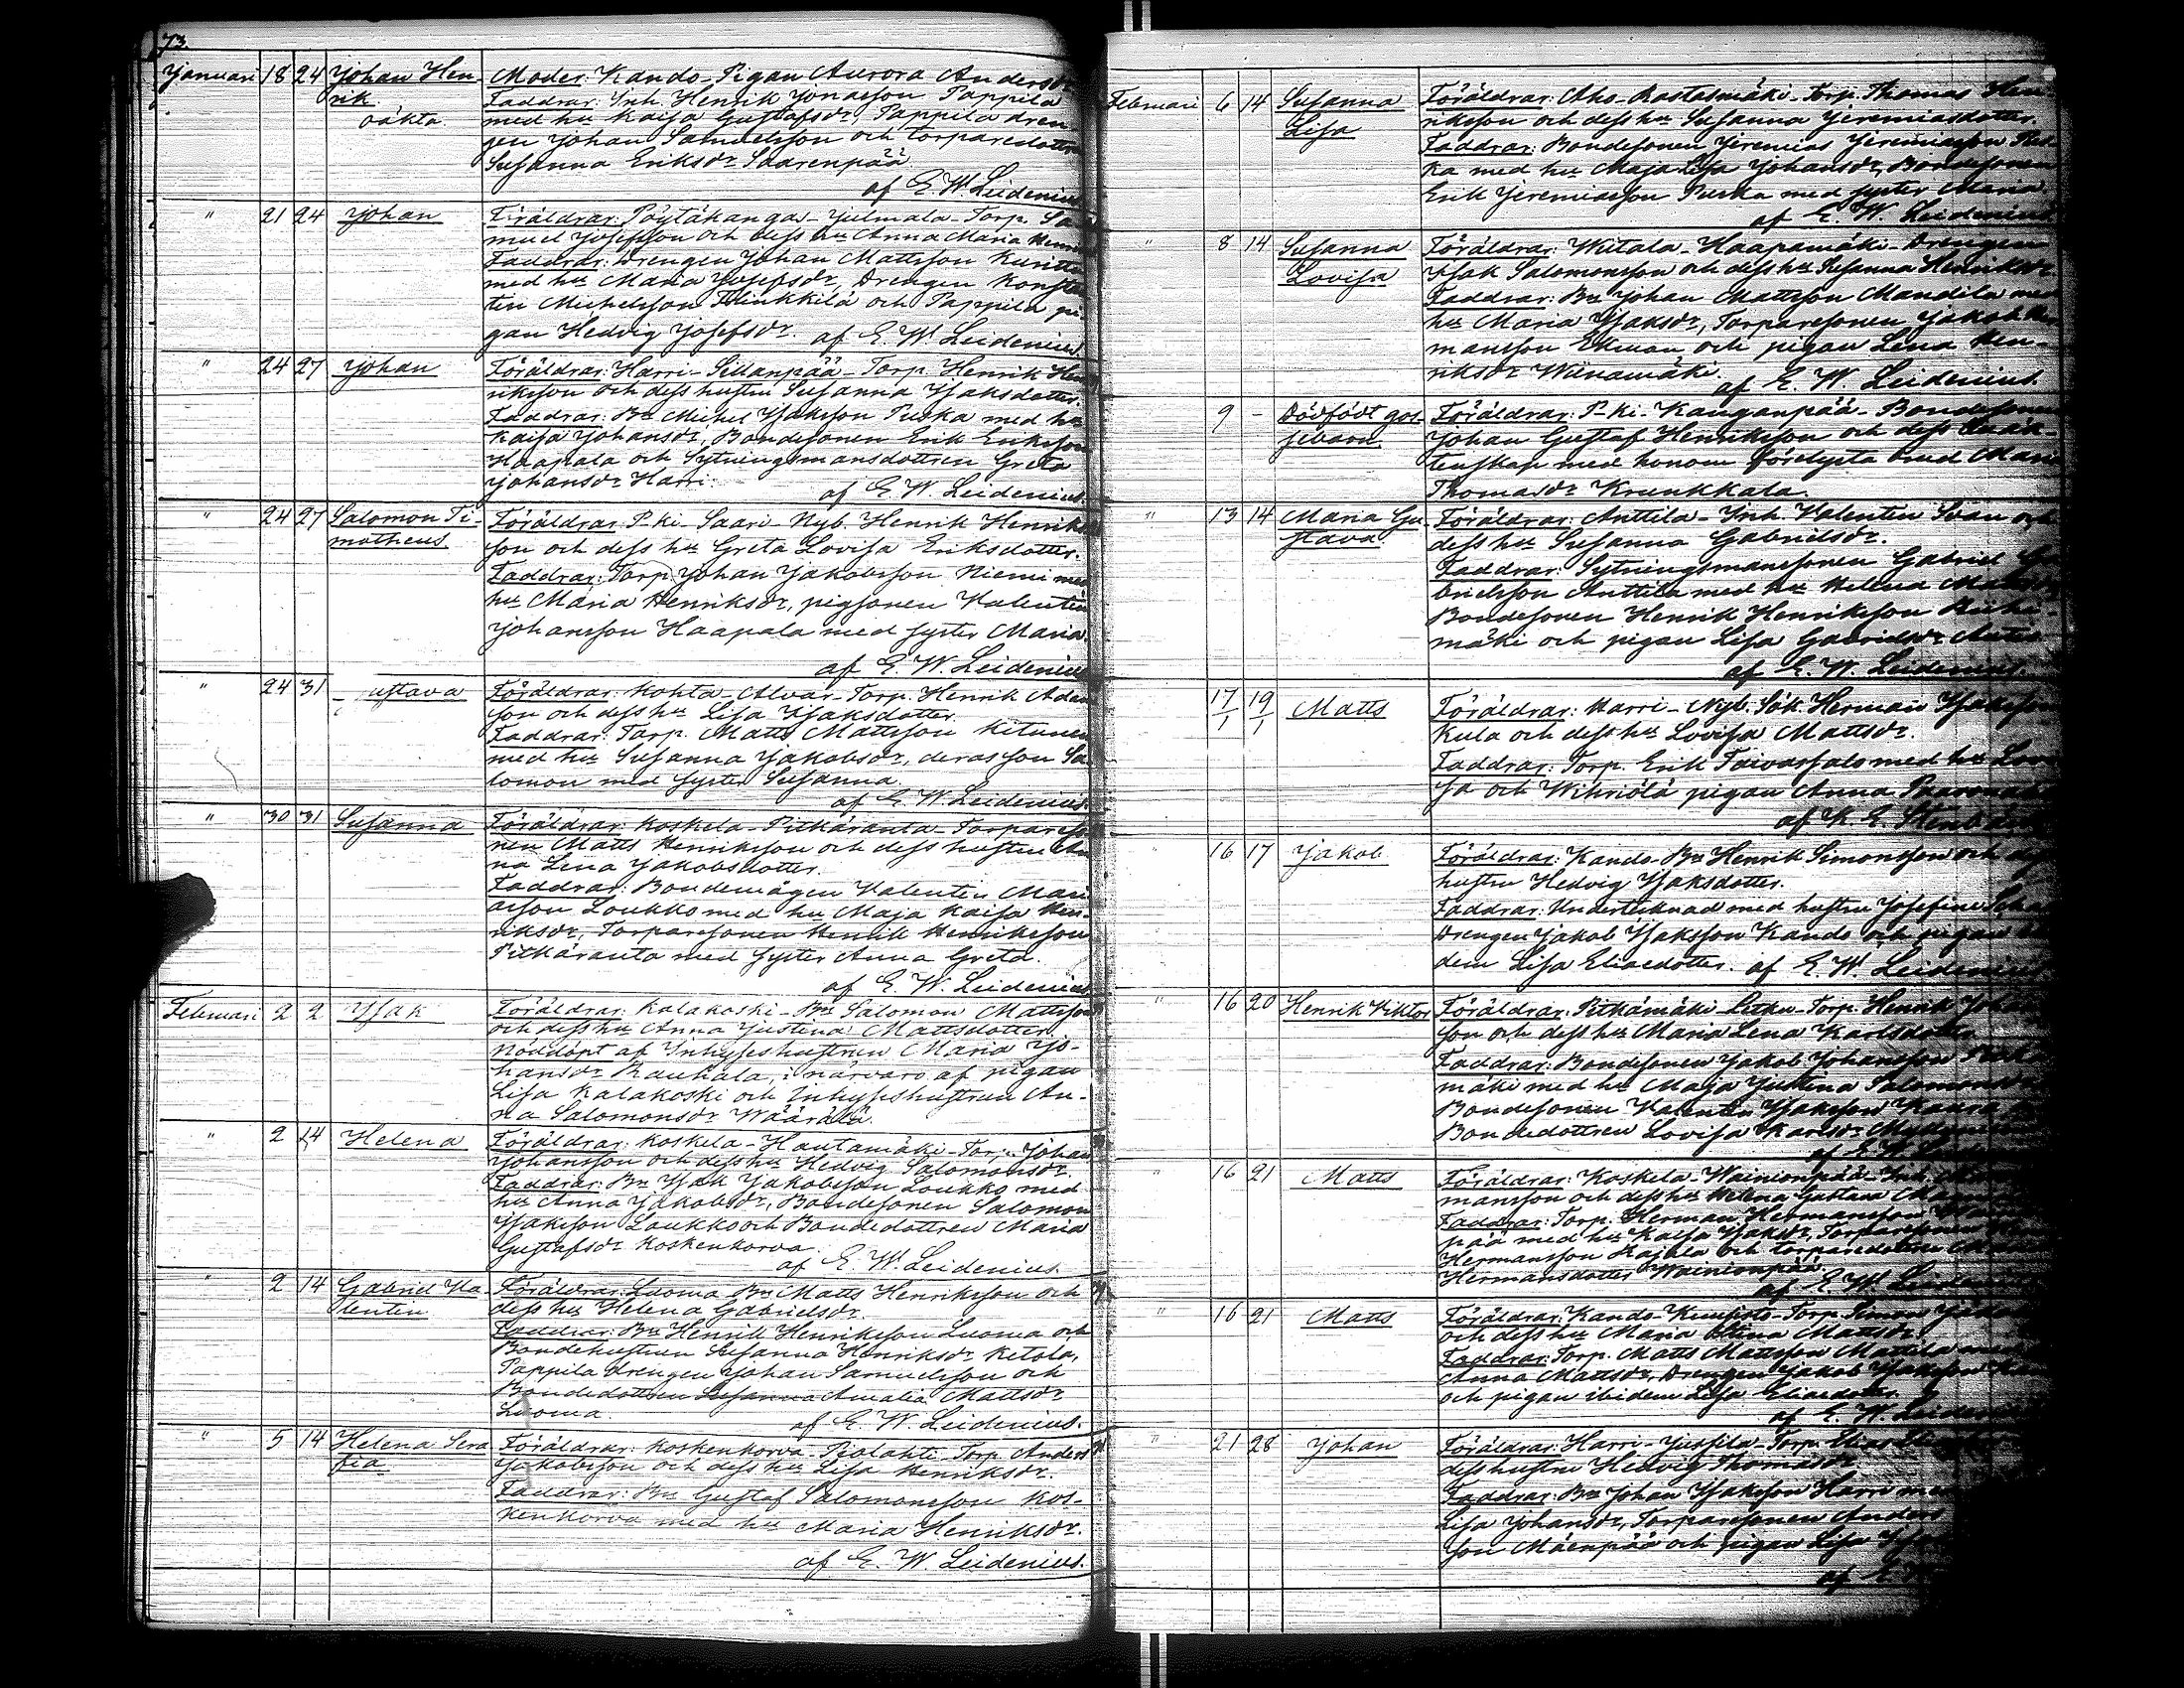 73.
Januari 18 24 Johan Hen- Moder: Kando-Pigan Aurora Andersdr
rik. Faddrar: Inh. Henrik Jonasson Pappila
oäkta. med hu Kaisa Gustafsdr, Pappila dren-
gen Johan Samuelsson och torparedottren
Susanna Eriksdr Saarenpää.
af E. W. Leidenius
" 21 24 Johan Föräldrar: Pöytäkanga-Julmala-Torp. Sa-
muel Josefsson och dess hu Anna Maria
Faddrar: Drengen Johan Mattsson
med hu Maria Josefsdr, Drengen Konstan
tin Michelsson och Pappila pi-
gan Hedvig Josefsdr. af E. W. Leidenius.
" 24 27 Johan Föräldrar: Harri-Sillanpää-Torp. Henrik Hen
riksson och dess hustru Susanna Isaksdotter.
Faddrar: Bn Michel Isaksson Puska med hu
Kaisa Johansdr, Bondesonen Erik Eriksson
Haapala och Sytningsmansdottren Greta
Johansdr Harri. af E. W. Leidenius.
" 24 27 Salomon Ti- Föräldrar: P-ki-Saari-Nyb. Henrik Henriks
motheus. son och dess hu Greta Lovisa Eriksdotter.
Faddrar: Torp. Johan Jakobsson Niemi med
hu Maria Henriksdr, pigsonen Valentin
Johansson Haapala med syster Maria.
af E. W. Leidenius
" 24 31 ustava Föräldrar: Kohta-Alvar-Torp. Henrik Adam
son och dess hu Lisa Isaksdotter.
Faddrar: Torp. Matts Mattsson Kitunen
med hu Susanna Jakobsdr, deras son Sa
lomon med syster Susanna.
af E. W. Leidenius.
" 30 31 Susanna Föräldrar: Koskela-Pitkäranta-Torpareso
nen Matts Henriksson och dess hustru An
na Lena Jakobsdotter.
Faddrar: Bondemågen Valentin
Loukko med hu Maja Kaisa Hen-
riksdr, Torparesonen Henrik Henriksson
Pitkäranta med syster Anna Greta.
af E. W. Leidenius
Februari 2 2 Isak Föräldrar: Kalakoski-Bn Salomon Mattsson
och dess hu Anna Justina Mattsdotter
Nöddöpt af Inhyseshustrun Maria Jo-
hansdr Raukala, i närvaro af pigan
Lisa Kalakoski och Inhyseshustrun An-
na Salomonsdr Wäärälä.
" 2 14 Helena Föräldrar: Koskela-Hautamäki-Torp. Johan
Johansson och dess hu Hedvig Salomonsdr.
Faddrar: Bn Isak Jakobsson Loukko med
hu Anna Jakobsdr, Bondesonen Salomon
Isaksson Loukko och Bondedottren Maria
Gustafsdr Koskenkorva.
af E. W. Leidenius.
" 2 14 Gabriel Va- Föräldrar: Luoma Bn Matts Henriksson och
lentin. dess hu Helena Gabrielsdr.
Faddrar: Bn Henrik Henriksson Luoma och
Bondehustrun Susanna Henriksdr Ketola,
Pappila drengen Johan Samuelsson och
Bondedottren Susanna Amalia Mattsdr
Luoma. af E. W. Leidenius.
" 5 14 Helena Sera Föräldrar: Koskenkorva-Pialahti-Torp. Anders
fia. Jakobsson och dess hu Lisa Henriksdr.
Faddrar: Bn Gustaf Salomonsson Kos-
kenkorva med hu Maria Henriksdr.
af E. W. Leidenius.
Februari 6 14 Susanna Föräldrar: Aho-Rastasmäki-Torp. Thomas Hen
Lisa riksson och dess hu Susanna Jeremiasdotter.
Faddrar: Bondesonen Jeremias Jeremiasson
ka med hu Maja Lisa Johansdr, Bondesonen
Erik Jeremiasson Puska med syster Maria.
af E. W. Leidenius.
" 8 14 Susanna Föräldrar: Witala-Haapamäki-Drengen
Lovisa Isak Salomonsson och dess hu Susanna Henriksdr
Faddrar: Bn Johan Mattsson Mandila med
hu Maria Isaksdr, Torparesonen Jakob
mansson Ekman och pigan Lena Hen-
riksdr Wänämäki.
af E. W. Leidenius.
9 - Dödfödt gos- Föräldrar: P-ki-Kanganpää-Bondesonen
sebarn. Johan Gustaf Henriksson och dess
tenskap med honom förelysta brud Maria
Thomasdr Krunkkala.
" 13 14 Maria Gu Föräldrar: Anttila-Inh Valentin Svan och
stava dess hu Susanna Gabrielsdr.
Faddrar: Sytningsmanssonen Gabriel Ga
brielsson Anttila med hu Helena
Bondesonen Henrik Henriksson
mäki och pigan Lisa Gabrielsdr
af E. W. Leidenius.
17/1 19/1 Matts Föräldrar: Harri-Nyb. Sök. Herman Isaksson
Kula och dess hu Lovisa Mattsdr.
Faddrar: Torp. Erik Taivassalo med hu Lovi
sa och Wihriölä pigan Anna
af K. E.
16 17 Jakob Föräldrar: Kando-Bn Henrik Simonsson och dess
hustru Hedvig Isaksdotter.
Faddrar: Undertecknad med hustru Josefina
Drengen Jakob Isaksson Kando och pigan ibi
dem Lisa Eliaedotter. af E. W. Leidenius
" 16 20 Henrik Viktor Föräldrar: Pitkämäki-Litku-Torp. Henrik Johans
son och dess hu Maria Lena Karlsdotter
Faddrar: Bondesonen Jakob Johansson
mäki med hu Maja Justina Salomonsdr
Bondesonen Valentin Isaksson
Bondedottren Lovisa Karlsdr
af E. W.
" 16 21 Matts Föräldrar: Koskela-Wainionpää-Inh.
mansson och dess hu Helena Gustava
Faddrar: Torp. Herman Hermansson Wainion
pää med hu Kaisa Isaksdr, Torparesonen
Hermansson Kajala och torparedottren
Hermansdotter Wainionpää.
af E. W. Leidenius
" 16 21 Matts Föräldrar: Kando-Kuusisto-Torp. Simon
och dess hu Maria Stina Mattsdr.
Faddrar: Torp. Matts Mattsson Mattila med
Anna Mattsdr, Drengen Jakob Isaksson
och pigan ibidem Lisa Eliaedotter.
af E. W. Leidenius
" 21 28 Johan Föräldrar: Harri-Jussila-Torp. Elias
dess hustru Hedvig Thomasdr
Faddrar: Bn Johan Isaksson Harri med
Lisa Johansdr, Torparesonen Anders
son Mäenpää och pigan Lisa
af E.